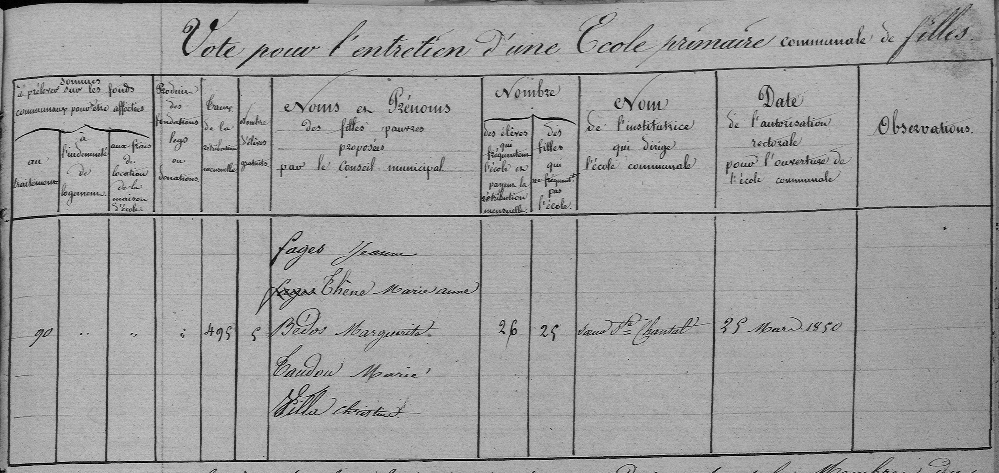 Vote pour l'entretien d'une Ecole primaire communale de filles.
Sommes
à prélever sur les fonds
communaux pour être affectées
au
traitement
à
l'indemnité
de
logement
aux frais
de
location
de la
maison
d'école.
Produit
des
fondations
legs
ou
donations.
Taux
de la
rétribution
mensuelle
Nombre
d'élèves
gratuits
Noms et Prénoms
des filles pauvres
proposées
par le Conseil municipal
Nombre
des élèves
qui
fréquentent
l'école en
payant la
rétribution
mensuelle.
des
filles
qui
ne fréquentent
pas
l'école.
Nom
de l'institutrice
qui dirige
l'école communale
Date
de l'autorisation
rectorale
pour l'ouverture de
l'école communale
Observations.
fages Jeanne
fages Thène Marie anne
90 " " " 495 5 Bédos Marguerite 26 25 soeur Ste Chantal 25 Mars 1850
Taudou Marie
Villa Christine